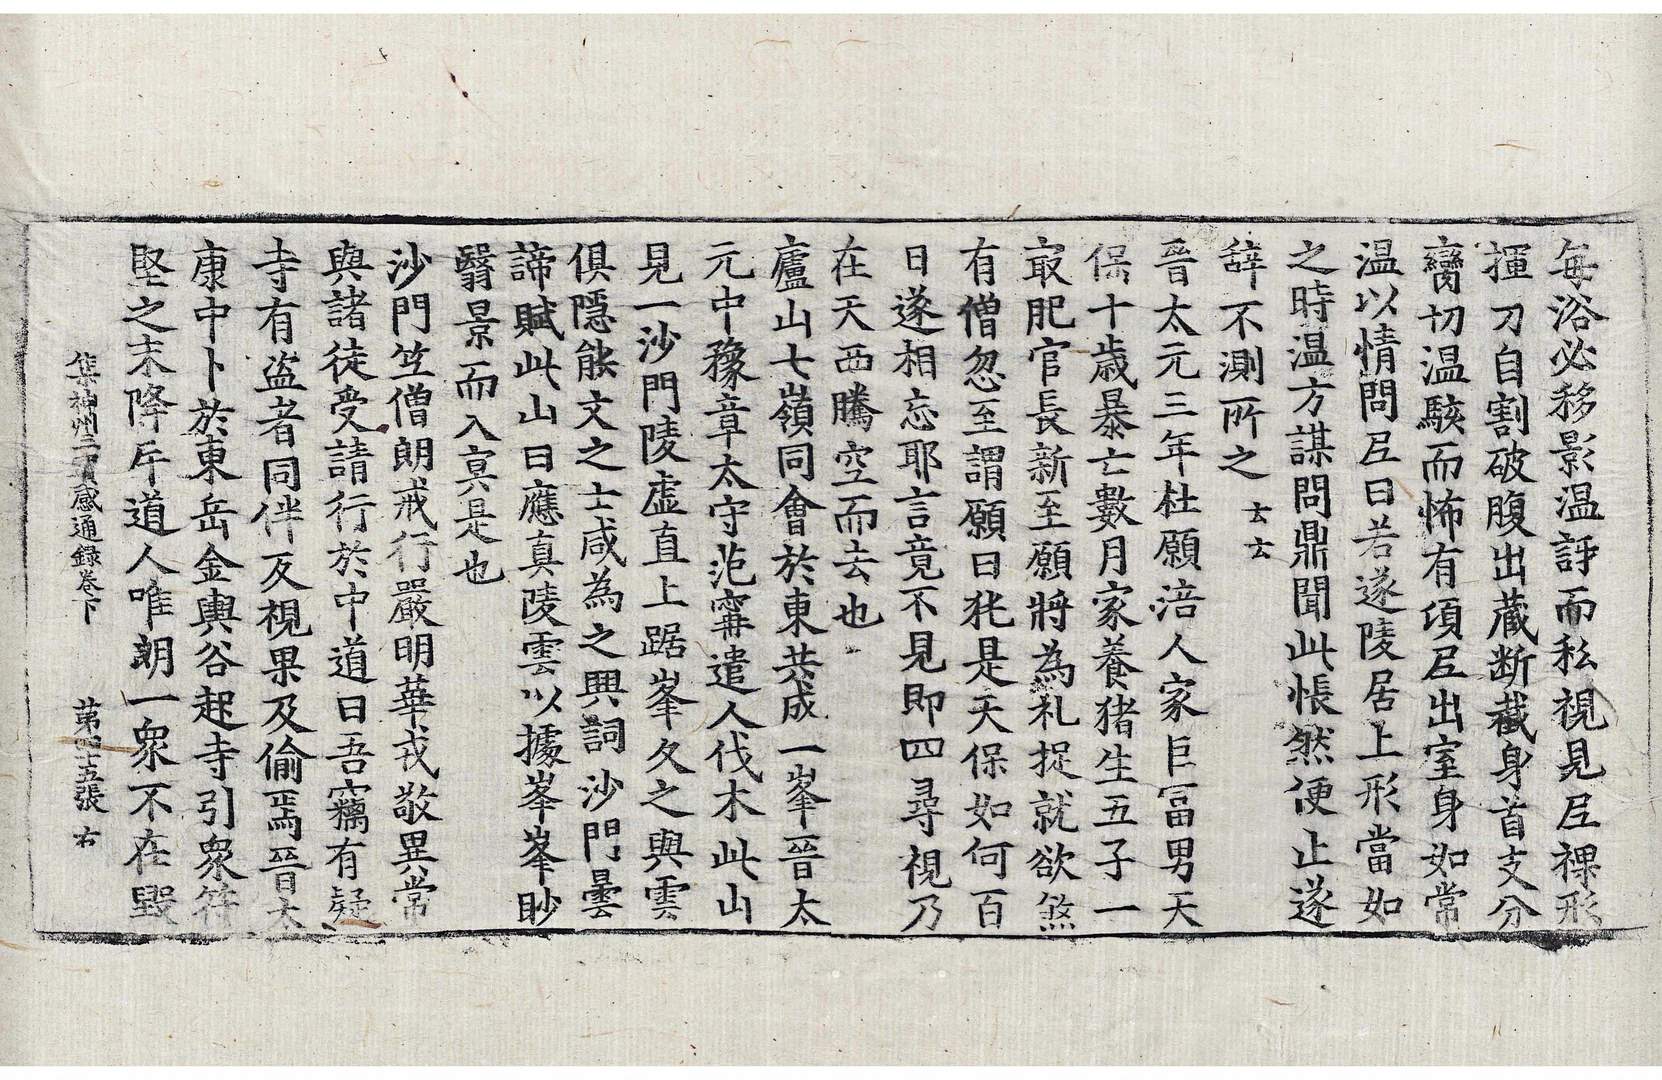 每浴必移影温訝而私視見𡰱裸形
揮刀自割破腹出藏断截身首支分
臠切温駭而怖有頃𡰱出室身如常
温以情問𡰱曰若遂陵居上形當如
之時温方謀問鼎聞此悵然便止遂
辞不測所之 云云
晉太元三年杜願涪人家巨冨男天
保十歳暴亡數月家養猪生五子一
㝡肥官長新至願將為礼捉就欲煞
有僧忽至謂願曰㹠是天保如何百
日遂相忘耶言竟不見即四尋視乃
在天西騰空而去也
廬山七嶺同會於東共成一峯晉太
元中豫章太守范寗遣人伐木此山
見一沙門陵虛直上踞峯久之與雲
俱隱能文之士咸為之興詞沙門曇
諦賦此山曰應真陵雲以據峯峯眇
翳景而入冥是也
沙門竺僧朗戒行嚴明華戎敬異常
與諸徒受請行於中道曰吾竊有疑
寺有盗者同伴反視果及偷焉晉太
康中卜於東岳金輿谷起寺引衆符
堅之末降斥道人唯朗一衆不在毀
集神州三寶感通錄卷下 第四十五張 右